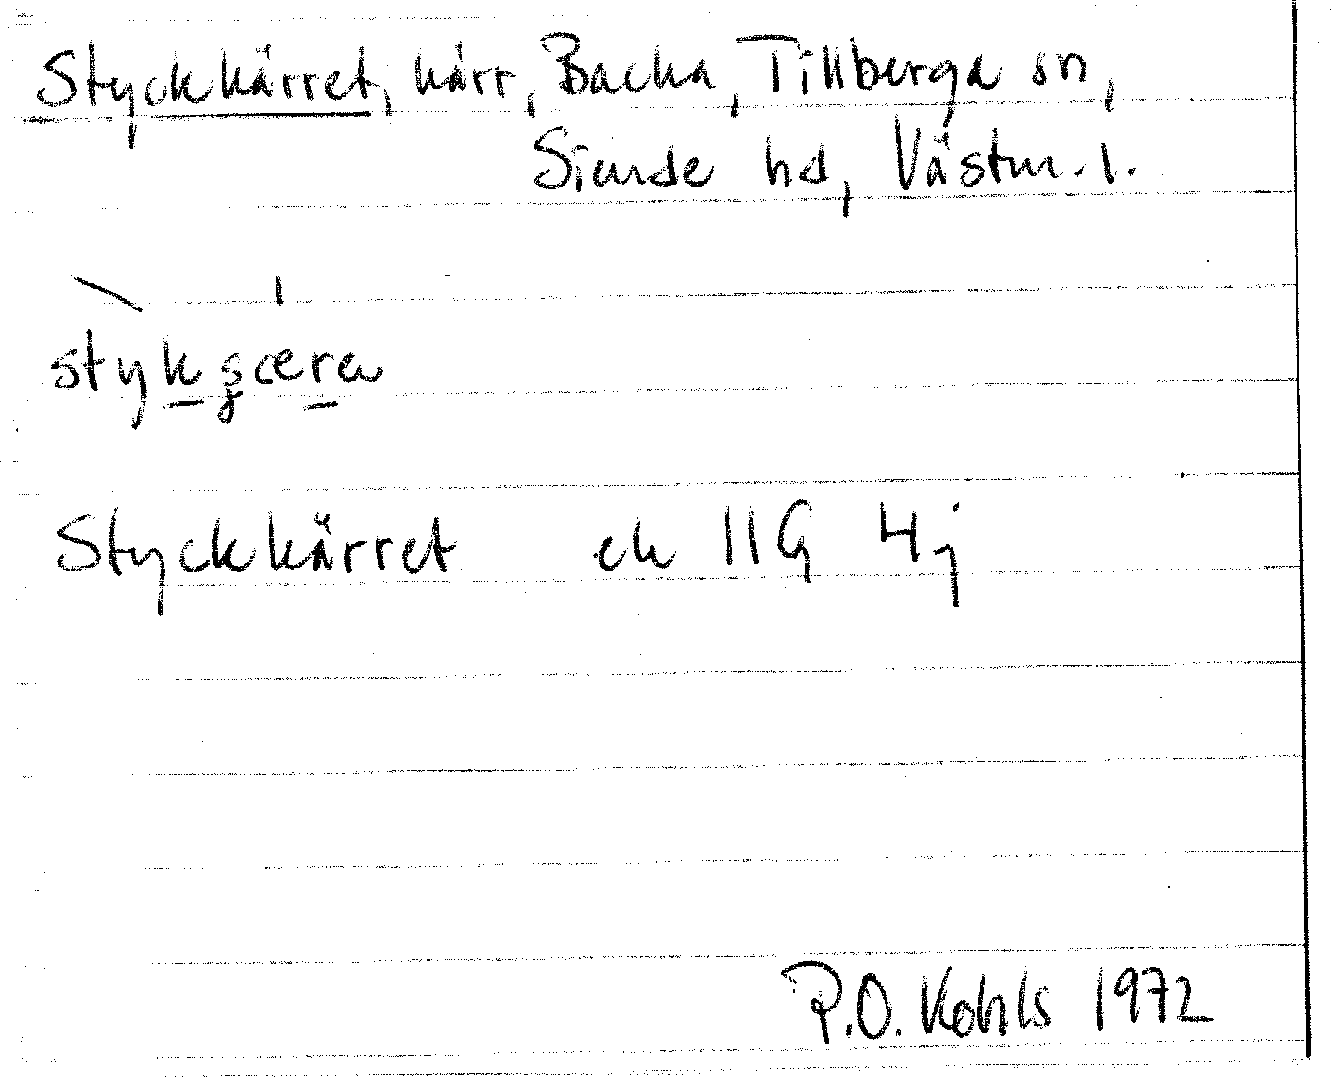 Styckkärret, kärr, Backa, Tillberga sn,
Siende hd, Västm. l.
Styckkärret ek 11G 4j
P.O. Kohls 1972